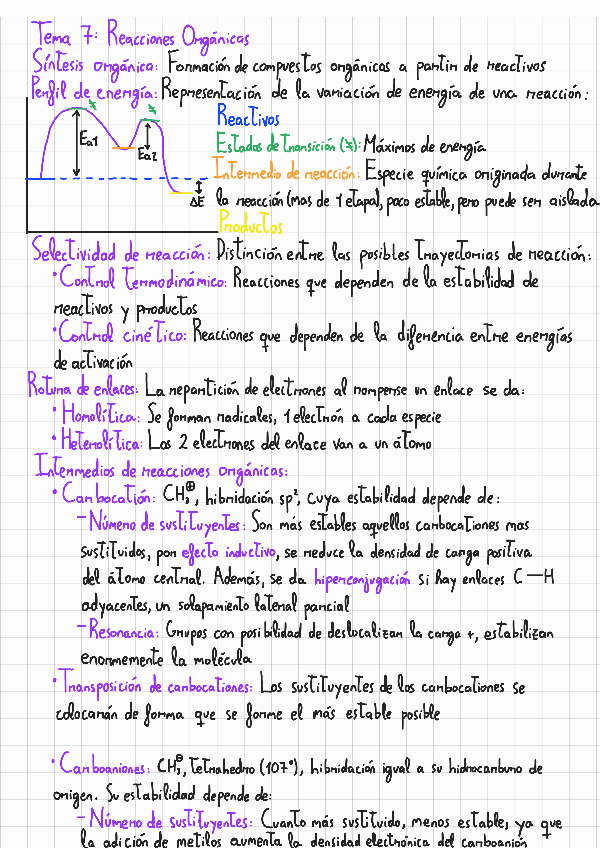 Tema 7: Reacciones Orgánicas
Síntesis orgánica: Formación de compuestos orgánicos a partir de reactivos
Perfil de energía: Representación de la variación de energía de una reacción:
Ea1
Ea2
ΔE
Reactivos
Estados de transición (⧧): Máximos de energía
Intermedio de reacción: Especie química originada durante
la reacción (mas de 1 etapa), poco estable, pero puede ser aislada
Productos
Selectividad de reacción: Distinción entre las posibles trayectorias de reacción:
• Control termodinámico: Reacciones que dependen de la estabilidad de
reactivos y productos
• Control cinético: Reacciones que dependen de la diferencia entre energías
de activación
Rotura de enlaces: La repartición de electrones al romperse un enlace se da:
• Homolítica: Se forman radicales, 1 electrón a cada especie
• Heterolítica: Los 2 electrones del enlace van a un átomo
Intermedios de reacciones orgánicas:
• Carbocatión: CH₃⊕, hibridación sp², cuya estabilidad depende de:
- Número de sustituyentes: Son más estables aquellos carbocationes mas
sustituidos, por efecto inductivo, se reduce la densidad de carga positiva
del átomo central. Además, se da hiperconjugación si hay enlaces C—H
adyacentes, un solapamiento lateral parcial
- Resonancia: Grupos con posibilidad de deslocalizar la carga +, estabilizan
enormemente la molécula
• Transposición de carbocationes: Los sustituyentes de los carbocationes se
colocarán de forma que se forme el más estable posible
• Carboaniones: CH₃⊖, tetrahedro (107°), hibridación igual a su hidrocarburo de
origen. Su estabilidad depende de:
- Número de sustituyentes: Cuanto más sustituido, menos estable, ya que
la adición de metilos aumenta la densidad electrónica del carboanión